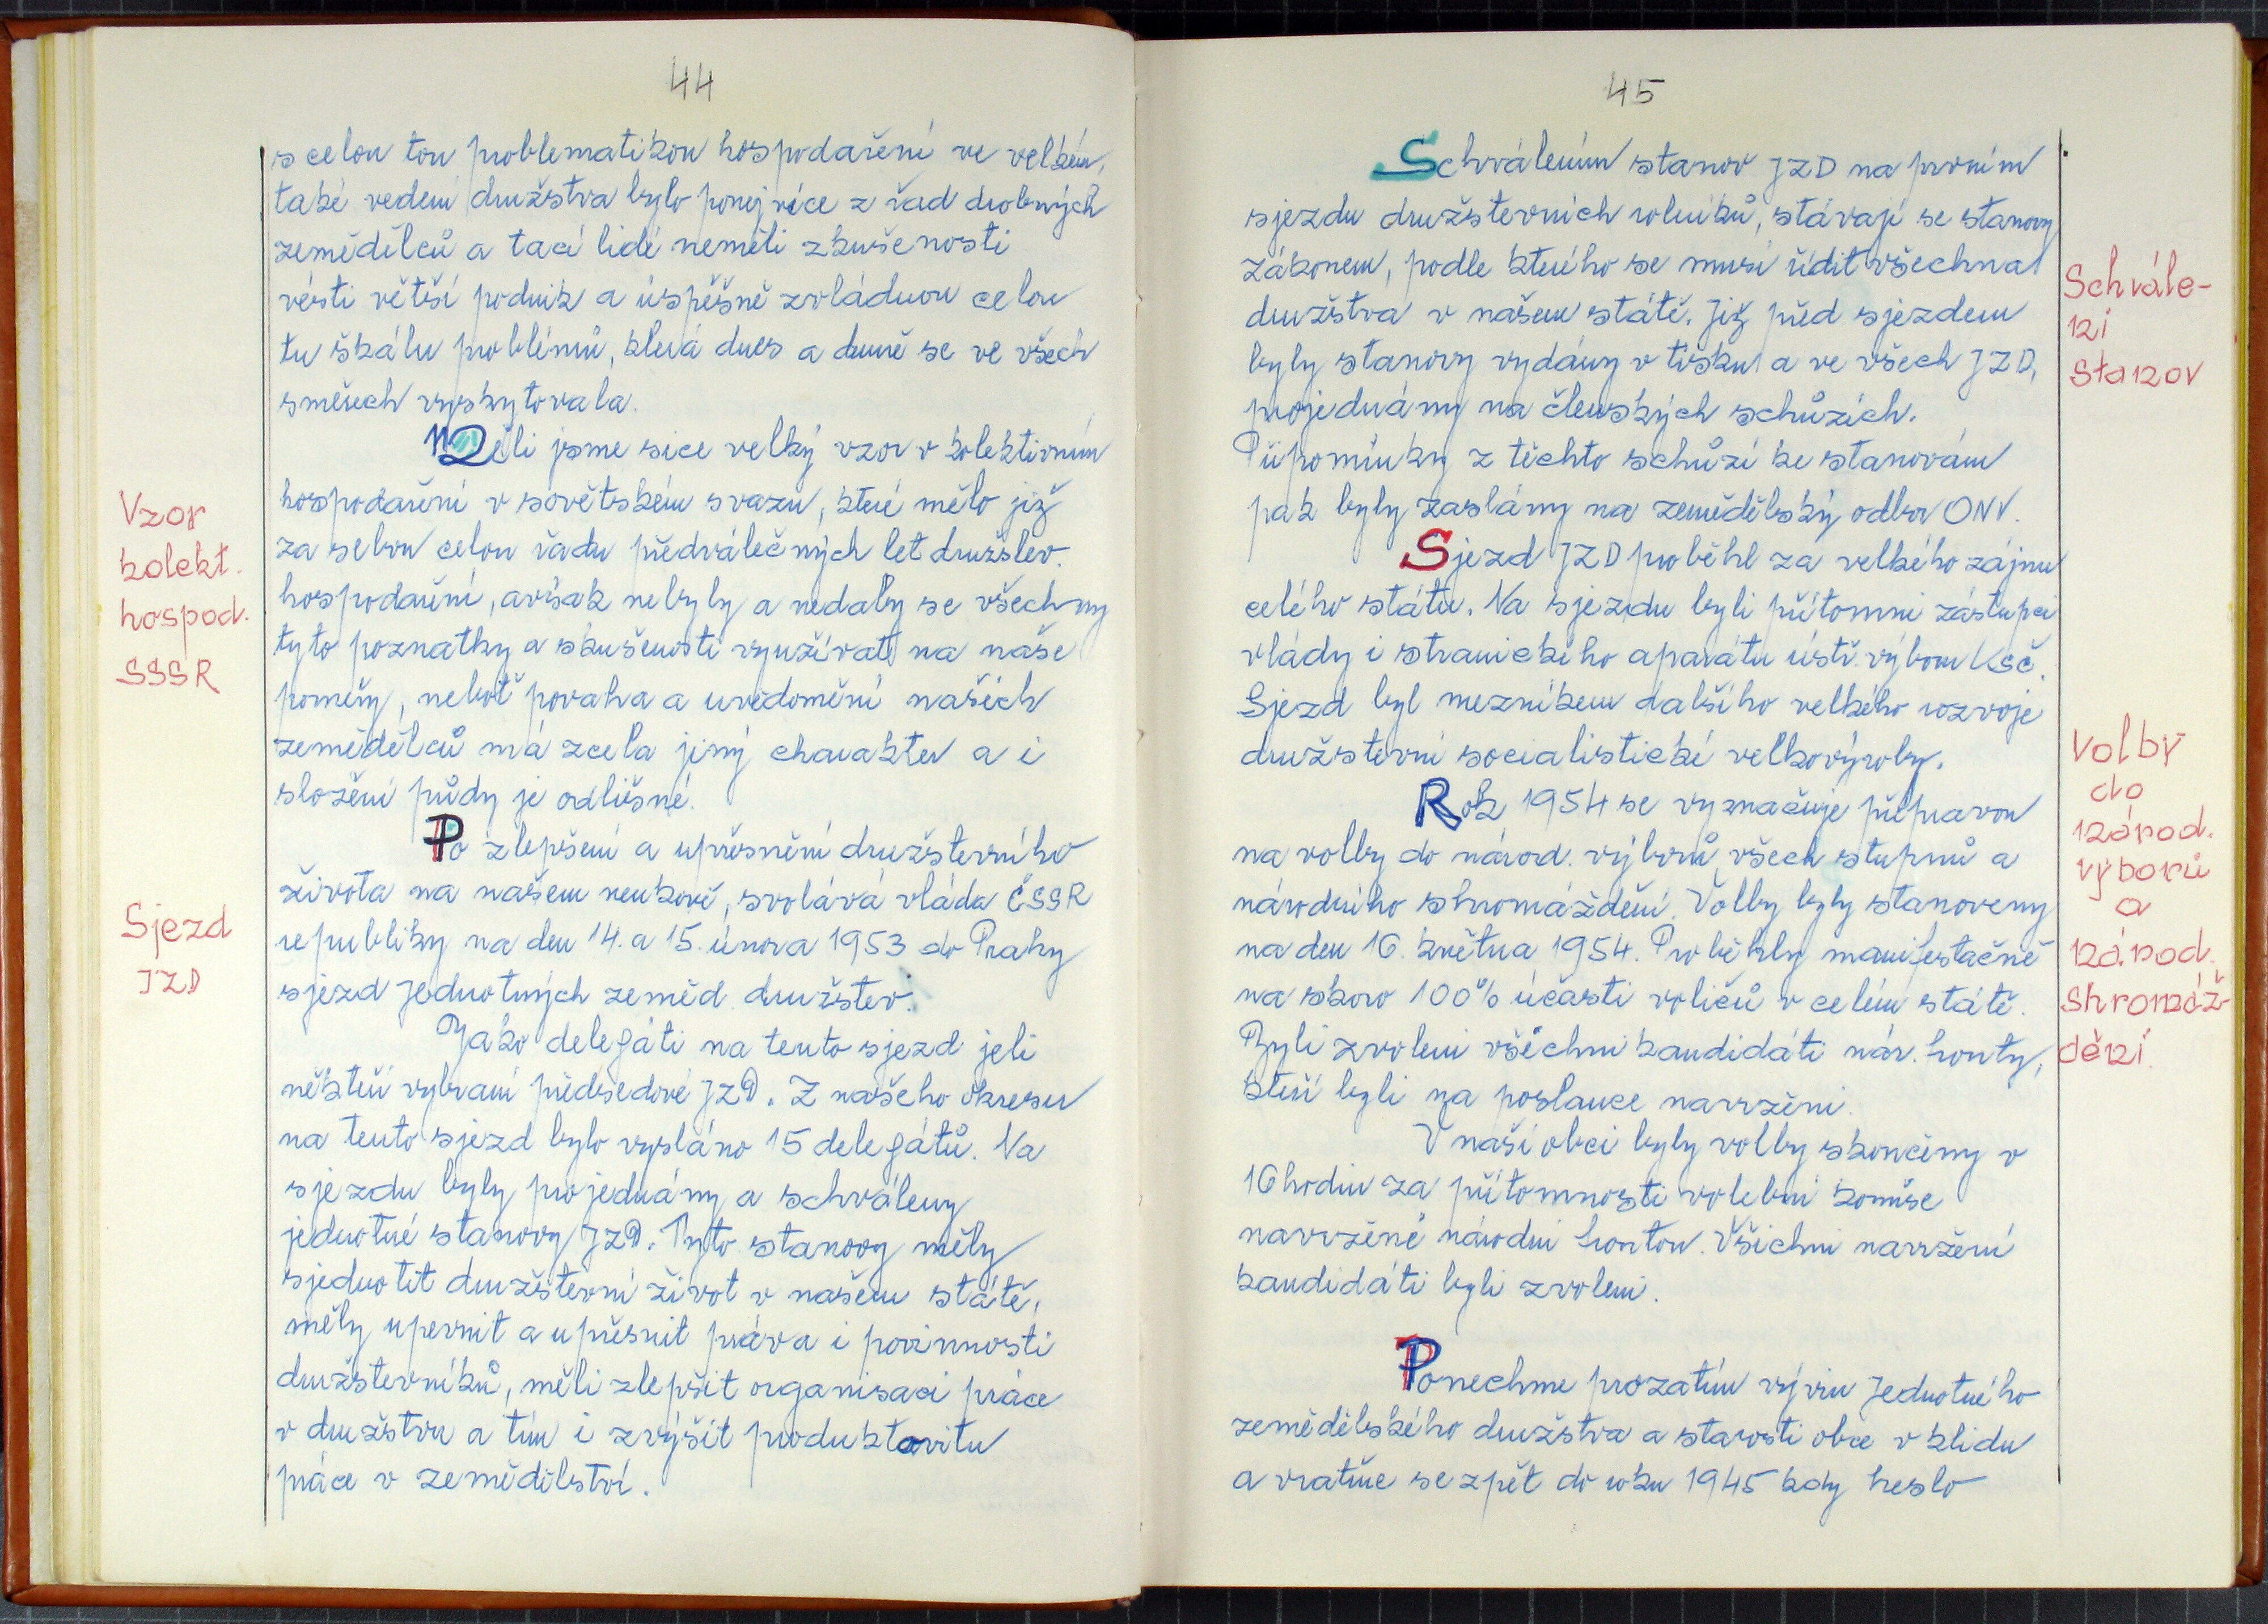 44
s celou tou problematikou hospodaření ve velkém,
také vedení družstva bylo ponejvíce z řad drobných
zemědělců a tací lidé neměli zkušenosti
vésti větší podnik a úspěšně zvládnou celou
tu škálu problémů, která dnes a denně se ve všech
směrech vyskytovala.
Měli jsme sice velký vzor v kolektivním
hospodaření v sovětském svazu, které mělo již
za sebou celou řadu předválečných let družstev.
hospodaření, avšak nebyly a nedaly se všechny
tyto poznatky a skušenosti využívat na naše
poměry, neboť povaha a uvědomění našich
zemědělců má zcela jiný charakter a i
složení půdy je odlišné.
Po zlepšení a upřesnění družstevního
života na našem venkově, svolává vláda ČSSR
republiky na den 14. a 15. února 1953 do Prahy
sjezd jednotných zeměd. družstev.
Jako delegáti na tento sjezd jeli
někteří vybraní předsedové JZD. Z našeho okresu
na tento sjezd bylo vysláno 15 delegátů. Na
sjezdu byly projednány a schváleny
jednotné stanovy JZD. Tyto stanovy měly
sjednotit družstevní život v našem státě,
měly upevnit a upřesnit práva i povinnosti
družstevníků, měli zlepšit organisaci práce
v družstvu a tím i zvýšit produktovitu
práce v zemědělství.
Vzor
kolekt.
hospod.
SSSR
Sjezd
JZD
45
Schválením stanov JZD na prvním
sjezdu družstevních rolníků, stávají se stanovy
zákonem, podle kterého se musí řídit všechna
družstva v našem státě. Již před sjezdem
byly stanovy vydány v tisku a ve všech JZD,
projednány na členských schůzích.
Připomínky z těchto schůzí ke stanovám
pak byly zaslány na zemědělský odbor ONV.
Sjezd JZD proběhl za velkého zájmu
celého státu. Na sjezdu byli přítomni zástupci
vlády i stranického aparátu ústř. výboru KSČ.
Sjezd byl mezníkem dalšího velkého rozvoje
družstevní socialistické velkovýroby.
Rok 1954 se vyznačuje přípravou
na volby do národ. výborů všech stupňů a
národního shromáždění. Volby byly stanoveny
na den 16. května 1954. Proběhly manifestačně
na skoro 100% účasti voličů v celém státě.
Byli zvoleni všichni kandidáti nár. fronty,
kteří byli na poslance navrženi.
V naší obci byly volby skončeny v
16 hodin za přítomnosti volební komise
navržené národní frontou. Všichni navržení
kandidáti byli zvoleni.
Ponechme prozatím vývin Jednotného
zemědělského družstva a starosti obce v klidu
a vraťme se zpět do roku 1945 kdy heslo
Schvále-
ní
stanov
Volby
do
národ.
výborů
a
národ.
shromáž-
dění.